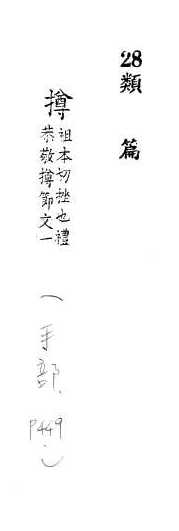 28類篇
撙
祖本切挫也禮
恭敬撙節文一
(手部.P449)